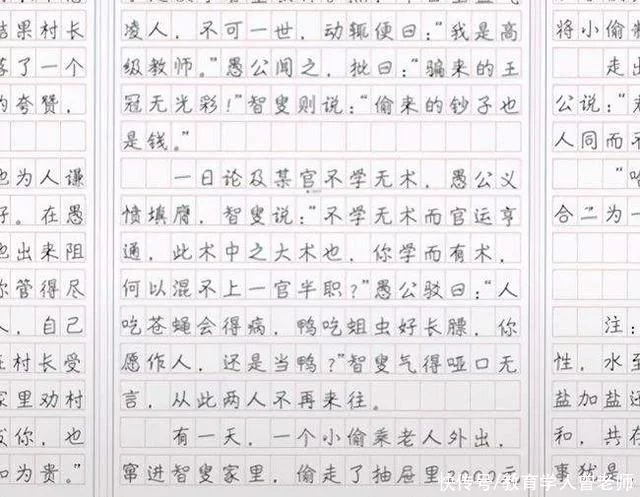 结果村长
落了一个
的夸赞，
他为人谦
好。在愚
也出来阻
你管得尽
人，自己
在村长受
家里劝村
发你，也
和为贵。”
凌人，不可一世，动辄便曰：“我是高
级教师。”愚公闻之，批曰：“骗来的王
冠无光彩！”智叟则说：“偷来的钞子也
是钱。”
一日论及某官不学无术，愚公义
愤填膺，智叟说：“不学无术而官运亨
通，此术中之大术也，你学而有术，
何以混不上一官半职？”愚公驳曰：“人
吃苍蝇会得病，鸭吃蛆虫好长膘，你
愿作人，还是当鸭？”智叟气得哑口无
言，从此两人不再来往。
有一天，一个小偷乘老人外出，
窜进智叟家里，偷走了抽屉里2000元
将小偷
走出
公说：“
人同而不
“哈
合二为一
注：
性，水至
盐加盐还
和，共存
事犹是
快传号/教育学人曾老师